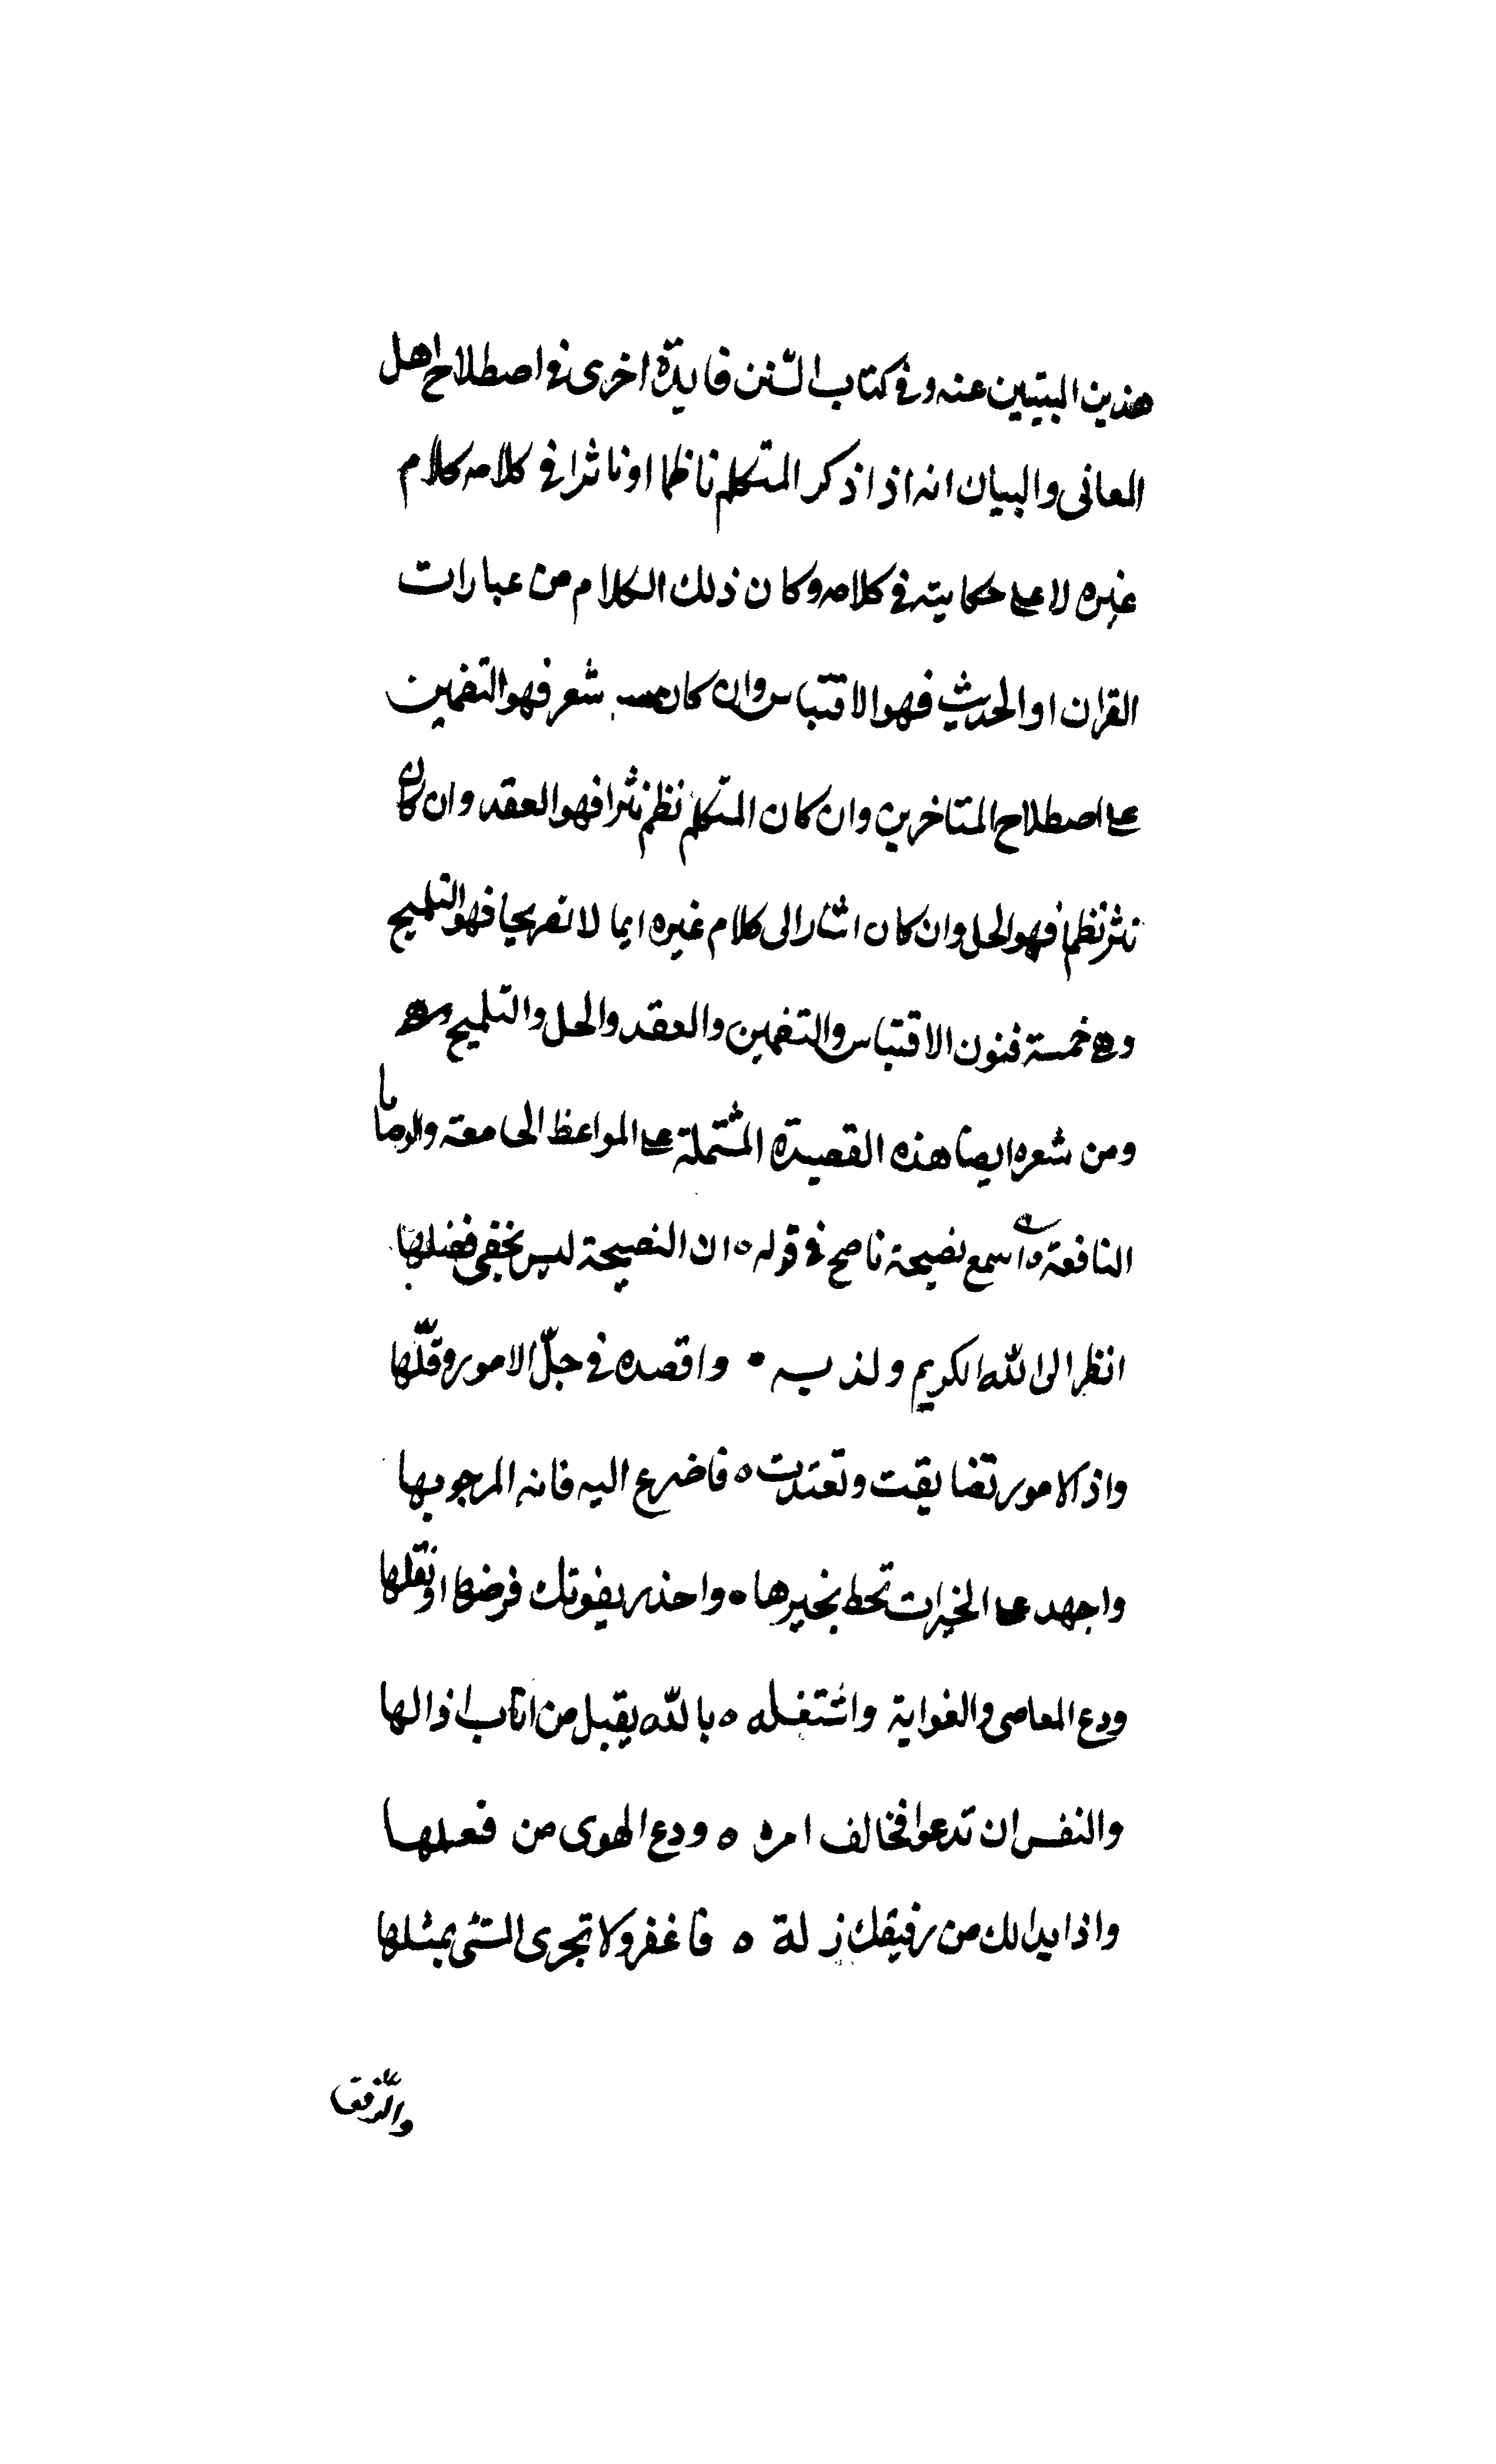 هذين البيتين عنه وفي كتاب السّنن فايدة اخرى في اصطلاح اهل
المعانى والبيان انه اذا ذكر المتكلم ناظما او ناثرا في كلامه كلام
غيره لا على حكايته في كلامه وكان ذلك الكلام من عبارات
القران او الحديث فهو الاقتباس وان كان شعر فهو التضمين
على اصطلاح المتاخرين وان كان المتكلم نظم نثرا فهو العقد وان كان
نثر نظما فهو الحل وان كان اشار الى كلام غيره ايما لا تصريحا فهو التلميح
وهى خمسة فنون الاقتباس والتضمين والعقد والحل والتلميح
ومن شعره ايضا هذه القصيدة المشتملة على المواعظ الجامعة والوصايا
النافعة ه اسمع نصيحة ناصح في قوله ه ان النصيحة ليس يخفى فضلها
انظر الى الله الكريم ولذ به • واقصده في جلّ الامور وقلّها
واذ الامور تضايقت وتعتدت ه فاضرع اليه فانه المرجو بها
واجهد على الخيرات تحط بخيرها ه واحذر يفوتك فرضها او نقلها
ودع المعاصى والغواية واشتغله ه بالله يقبل من اناب اذا لها
والنفس ان تدعوا فخالف امره ه ودع الهوى من فعلها
واذا يدا لك من رفيقك زلة ه فاغفر ولا تجرى الشى بمثلها
والرّفق